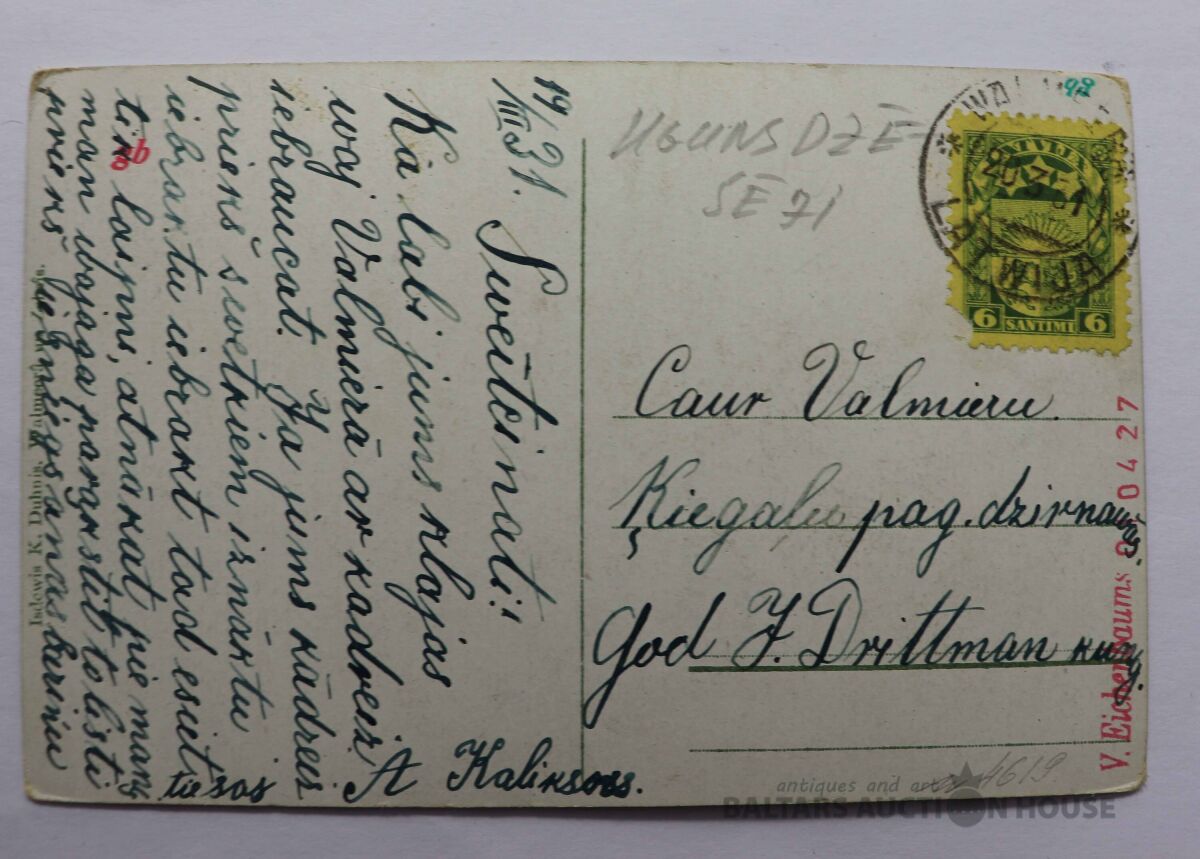 19/III 31.
Sweitcinati!
Kā labi jums klajas
waj Valmierā ar kadreiz
iebraucat. Ja jums kādreis
prieks swetkiem iznāktu
iebraktu iebrakt tad esiet
tik laipni, atnākat pie mans
man wajaga parakstit to listi
priekš
tiesas
A Kaliksons.
Isdewis K. Duhnis, Walmeerā
UGUNS DZĒ-
SĒJI
98
LATWIJA
LATVIJA
6 SANTIMI 6
Caur Valmieru.
Ķiegaļu pag. dzirnawās
God J. Drittman kung.
V. Eichenbaums 0427
4619
antiques and art
BALTARS AUCTION HOUSE